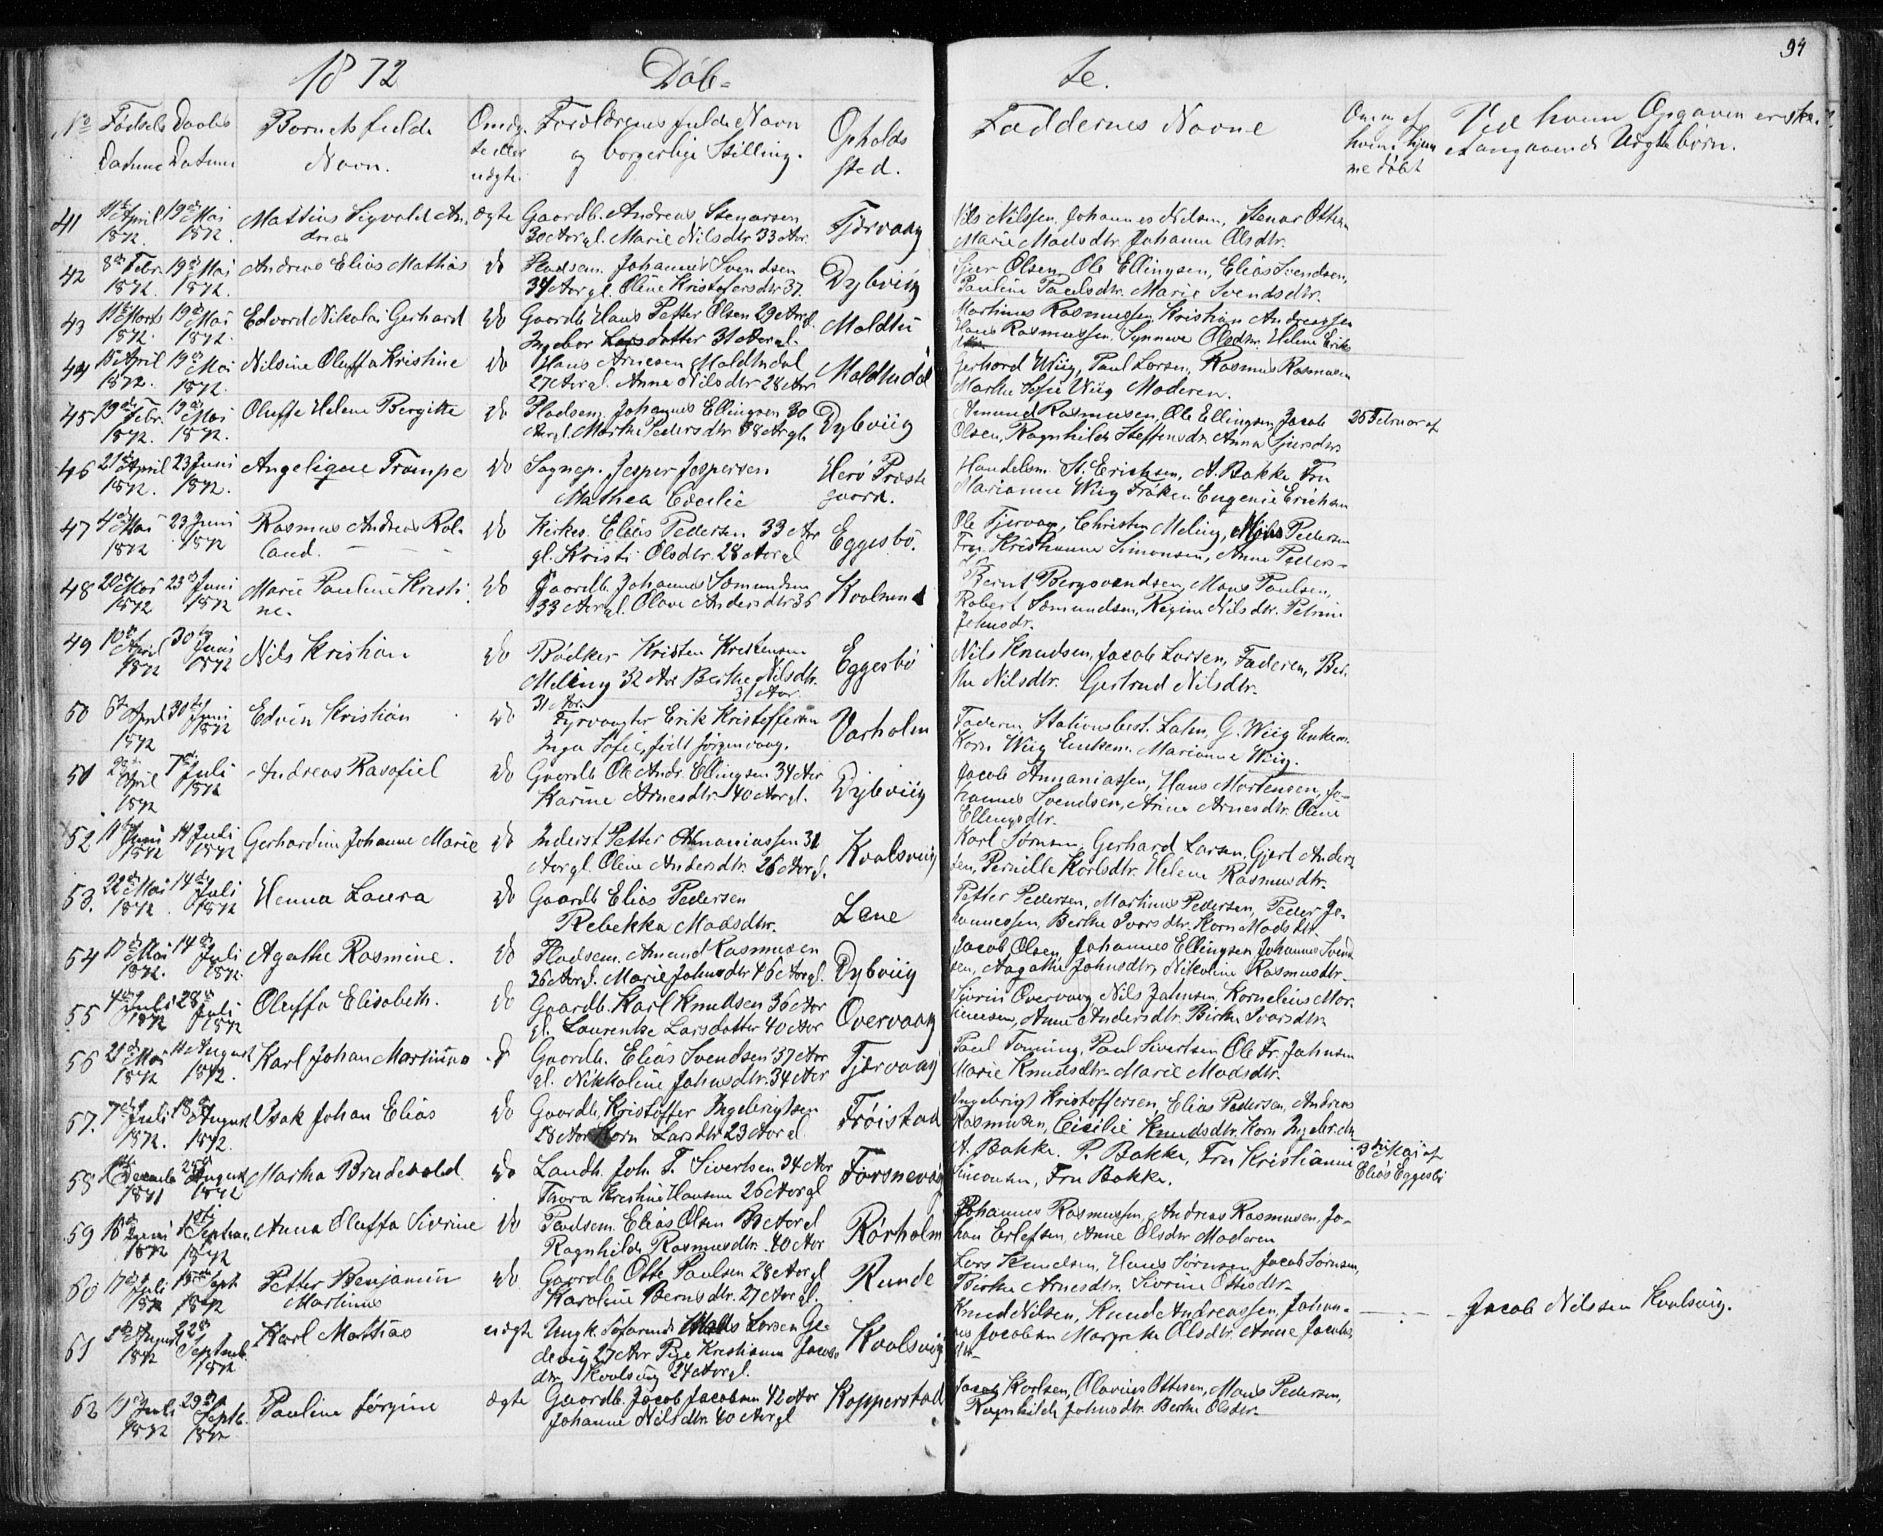 94
1872 Døb- te.
No Fødsels Daabs Barnets fulde Om æg- Forældrenes fulde Navn Opholds Faddernes Navne Om og af Ved hvem Opgaven er
Datum Datum Navn. te eller og borgerlige Stilling. sted. hvem hjem angaaende Uægte børn.
uægte. me døbt
41 11te April 19de Mai Mattius Sigvald An- ægte Gaardb. Andreas Stenarsen Tjørvaag Nils Nilssen, Johannes Nilsen, Stenar
1872. 1872. dreas 30 Aar gl. Marie Nilsdtr 33 Aar. Marie Madsdtr. Johanne Olsdtr.
42 8de Febr. 19de Mai Andreas Elias Mathias do Pladsem. Johannes Svendsen Dybviig Olsen, Ole Ellingsen, Elias Svendsen,
1872. 1872. 34 Aar gl. Oline Kristofersdtr 37. Pauline Paulsdtr. Marie Svendsdtr.
43 11te Marts 19de Mai Edvard Nikolai Gerhard do Gaardb. Hans Petter Olsen 29 Aar gl. Moldtu Martinus Rasmussen, Kristian Andreassen
1872. 1872. Ingebor Larsdatter 31 Aar gl. Hans Rasmussen, Synneve Olsdtr. Helene Eriks
44 15 April 19de Mai Nilsine Oluffa Kristine do Hans Arnesen Moldtudal Moldtudal Gerhard Wiig, Paul Larsen, Rasmus Rasmussen
1872. 1872. 27 Aar gl. Anne Nilsdtr 28 Aar Marthe Sofie Wiig Moderen.
45 19de Febr. 19de Mai Oluffe Helene Bergitte do Pladsem. Johannes Ellingsen 30 Dybviig Amund Rasmussen, Ole Ellingsen, Jacob 25 Februar af
1872. 1872. Aar gl. Marthe Pedersdtr 38 Aar gl. Olsen, Ragnhilde Steffensdtr. Anna Sjursdtr
46 21de April 23 Juni Angelique Trampe do Sognep. Jesper Jespersen Herø Præste Handelsm. St. Erichsen, A. Bakke Fru
1872. 1872. Mathea Cecilie gaard. Marianne Wiig Frøken Eugenie Erichsen
47 4de Mai 23 Juni Rasmus Andreas Ro- do Kirkes. Elias Pedersen 33 Aar Eggesbø. Ole Tjervaag, Christen Meling, Mons Pedersen
1872 1872 land. gl. Kristi Olsdtr. 28 Aar gl Fru Kristianne Simonsen, Anne Peders-
48 20de Mai 23de Juni Marie Pauline Kristi- do Gaardb. Johannes Samundsen Kvalsund Bernt Bergsvendsen, Mons Paulsen,
1872 1872 ne. 33 Aar gl. Olave Andersdtr 36 Robert Samundsen, Regine Nilsdtr. Petrine
Johnsdtr.
49 10de April 30te Juni Nils Kristian do Bødker Kristen Kristensen Eggesbø Nils Knudsen, Jacob Larsen, Faderen, Ber-
1872 1872 Meling 32 Aar Berthe Nilsdtr. the Nilsdtr. Gertrud Nilsdtr.
31 Aar
50 6te April 30te Juni Edvin Kristian do 31 Aar. Fyrvogter Erik Kristoffersen Varholm Faderen Stationsbest. Lahn, G. Wiig Enkem.
1872 1872 Inga Sofie, født Jørgenvaag. Karn Wiig Enkem. Marianne Wiig.
51 April 7de Juli Andreas Rasafiel do Gaardb. Ole Andr. Ellingsen 34 Aar Dybviig Jacob Annaniassen, Hans Mortensen, Jo-
1872 1872 Karine Arnesdtr. 40 Aar gl. hannes Svendsen, Arne Arnesdtr. Oline
Ellingsdtr.
52 11te Juni 14 Juli Gerhardine Johanne Marie do Inderst Petter Annaniassen 31 Kvalsviig Karl Sørnsen, Gerhard Larsen, Gjert Anders
1872 1872 Aar gl. Oline Andersdtr. 26 Aar gl. sen, Pernille Karlsdtr. Helene Rasmusdtr.
53. 22de Mai 14de Juli Henna Laura do Gaardb. Elias Pedersen Lene Petter Pedersen, Martinus Pedersen, Peder Jo-
1872 1872 Rebekka Madsdtr. hannessen, Berthe Ivarsdtr. Karn Madsdtr.
54 17de Mai 14de Juli Agathe Rasmine. do Pladsem. Amund Rasmussen Dybviig Jacob Olsen, Johannes Ellingsen, Johannes Svend-
1872. 1872. 36 Aar gl. Marie Johnsdtr 46 Aar gl. sen, Aagathe Johnsdtr, Nikoline Rasmusdtr.
55 4de Juli 28de Juli Oluffa Elisabeth. do Gaardb. Karl Knudsen 36 Aar Overvaag Overvaag, Nils Johnsen, Kornelius Mor-
1872 1872 gl. Laurentse Larsdatter 40 Aar tinusen, Anne Andersdtr. Birthe Ivarsdtr.
56 21de Mai 11 August Karl Johan Martinus do Gaardb. Elias Svendsen 37 Aar Tjørvaag Paul Paul Sivertsen Ole Fr. Johnsen
1872 1872. gl. Nikkoline Johnsdtr. 34 Aar Marie Knudsdtr. Marie Madsdtr.
57. 7de Juli 18de August Isak Johan Elias do Gaardb. Kristoffer Ingebrigtsen Frøistad Ingebrigt Kristoffersen, Elias Pedersen, Andreas
1872. 1872. 28 Aar Karn Larsdtr 23 Aar gl Rasmussen, Cicilie Knudsdtr. Karn Ingebr.dtr
58 Decemb. August Martha Brudevold do Landh. Joh. T. Sivertsen 34 Aar Forsnevaag A. Bakke. P. Bakke, Fru Kristianne 3die Mai af
1871 1872 Thora Kristine Hansene 26 Aar gl Simonsen, Fru Bakke. Elias Eggesbø
59 16de Juni 1ste Septbr. Anna Oluffa Sivrine do Pladsem. Elias Olsen Aar gl Rørholm Johannes Rasmussen, Andreas Rasmussen, Jo-
1872 1872 Ragnhilde Rasmusdtr. 40 Aar han Erlefsen, Anne Olsdtr Moderen
60 17de Juli 15de Sept Petter Benjamin do Gaardb. Otte Paulsen 28 Aar gl Runde Lars Knudsen, Hans Sørnsen, Jacob Sørnsen,
1872 1872 Martinus Karoline Berntsdtr. 27 Aar gl. Birthe Arnesdtr. Sivrine Ottesdtr.
61 5te August 22de Septemb. Karl Mathias uægte Ungk. Søfarende Mads Larsen Ge- Kvalsviig Knud Nilsen, Knud Andreassen, Johan- Jacob Nilssen Kvalsvig.
1872 1872 devig 27 Aar Pige Kristianne Jacobs nes Jacobsen Margrethe Olsdtr. Anne Jacobs
dtr. Kvalsvig 24 Aar gl. dtr.
62 Juli 29de Septb. Pauline Jørgine ægte Gaardb. Jacob Jacobsen 42 Aar Kopperstad Jacob Karlsen, Olavius Ottesen, Mons Pedersen,
1872 1872 Johanne Nilsdtr. 40 Aar gl Ragnhilde Johnsdtr. Berthe Olsdtr.